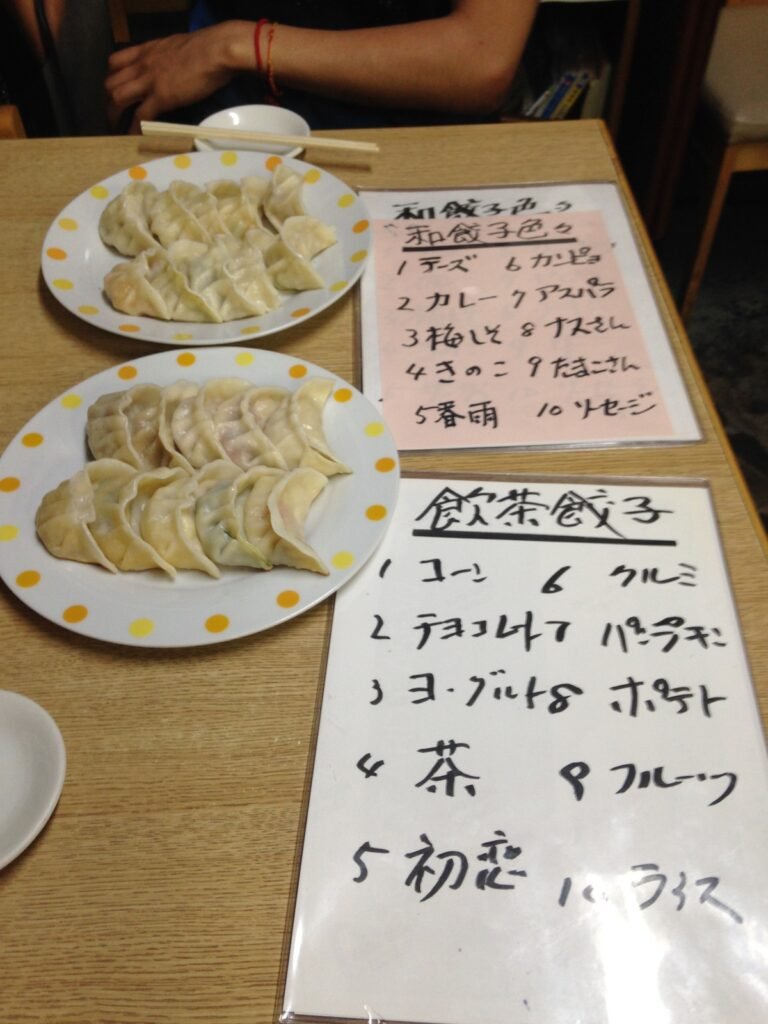 和餃子色々
和餃子色々
1 チーズ 6 カリピョ
2 カレー 7 アスパラ
3 梅しそ 8 ナスさん
4 きのこ 9 たまごさん
5 春雨 10 ソーセージ
飲茶餃子
1 コーン 6 クルミ
2 チョコレート 7 パンプキン
3 ヨーグルト 8 ポテト
4 茶 9 フルーツ
5 初恋 10 ライス